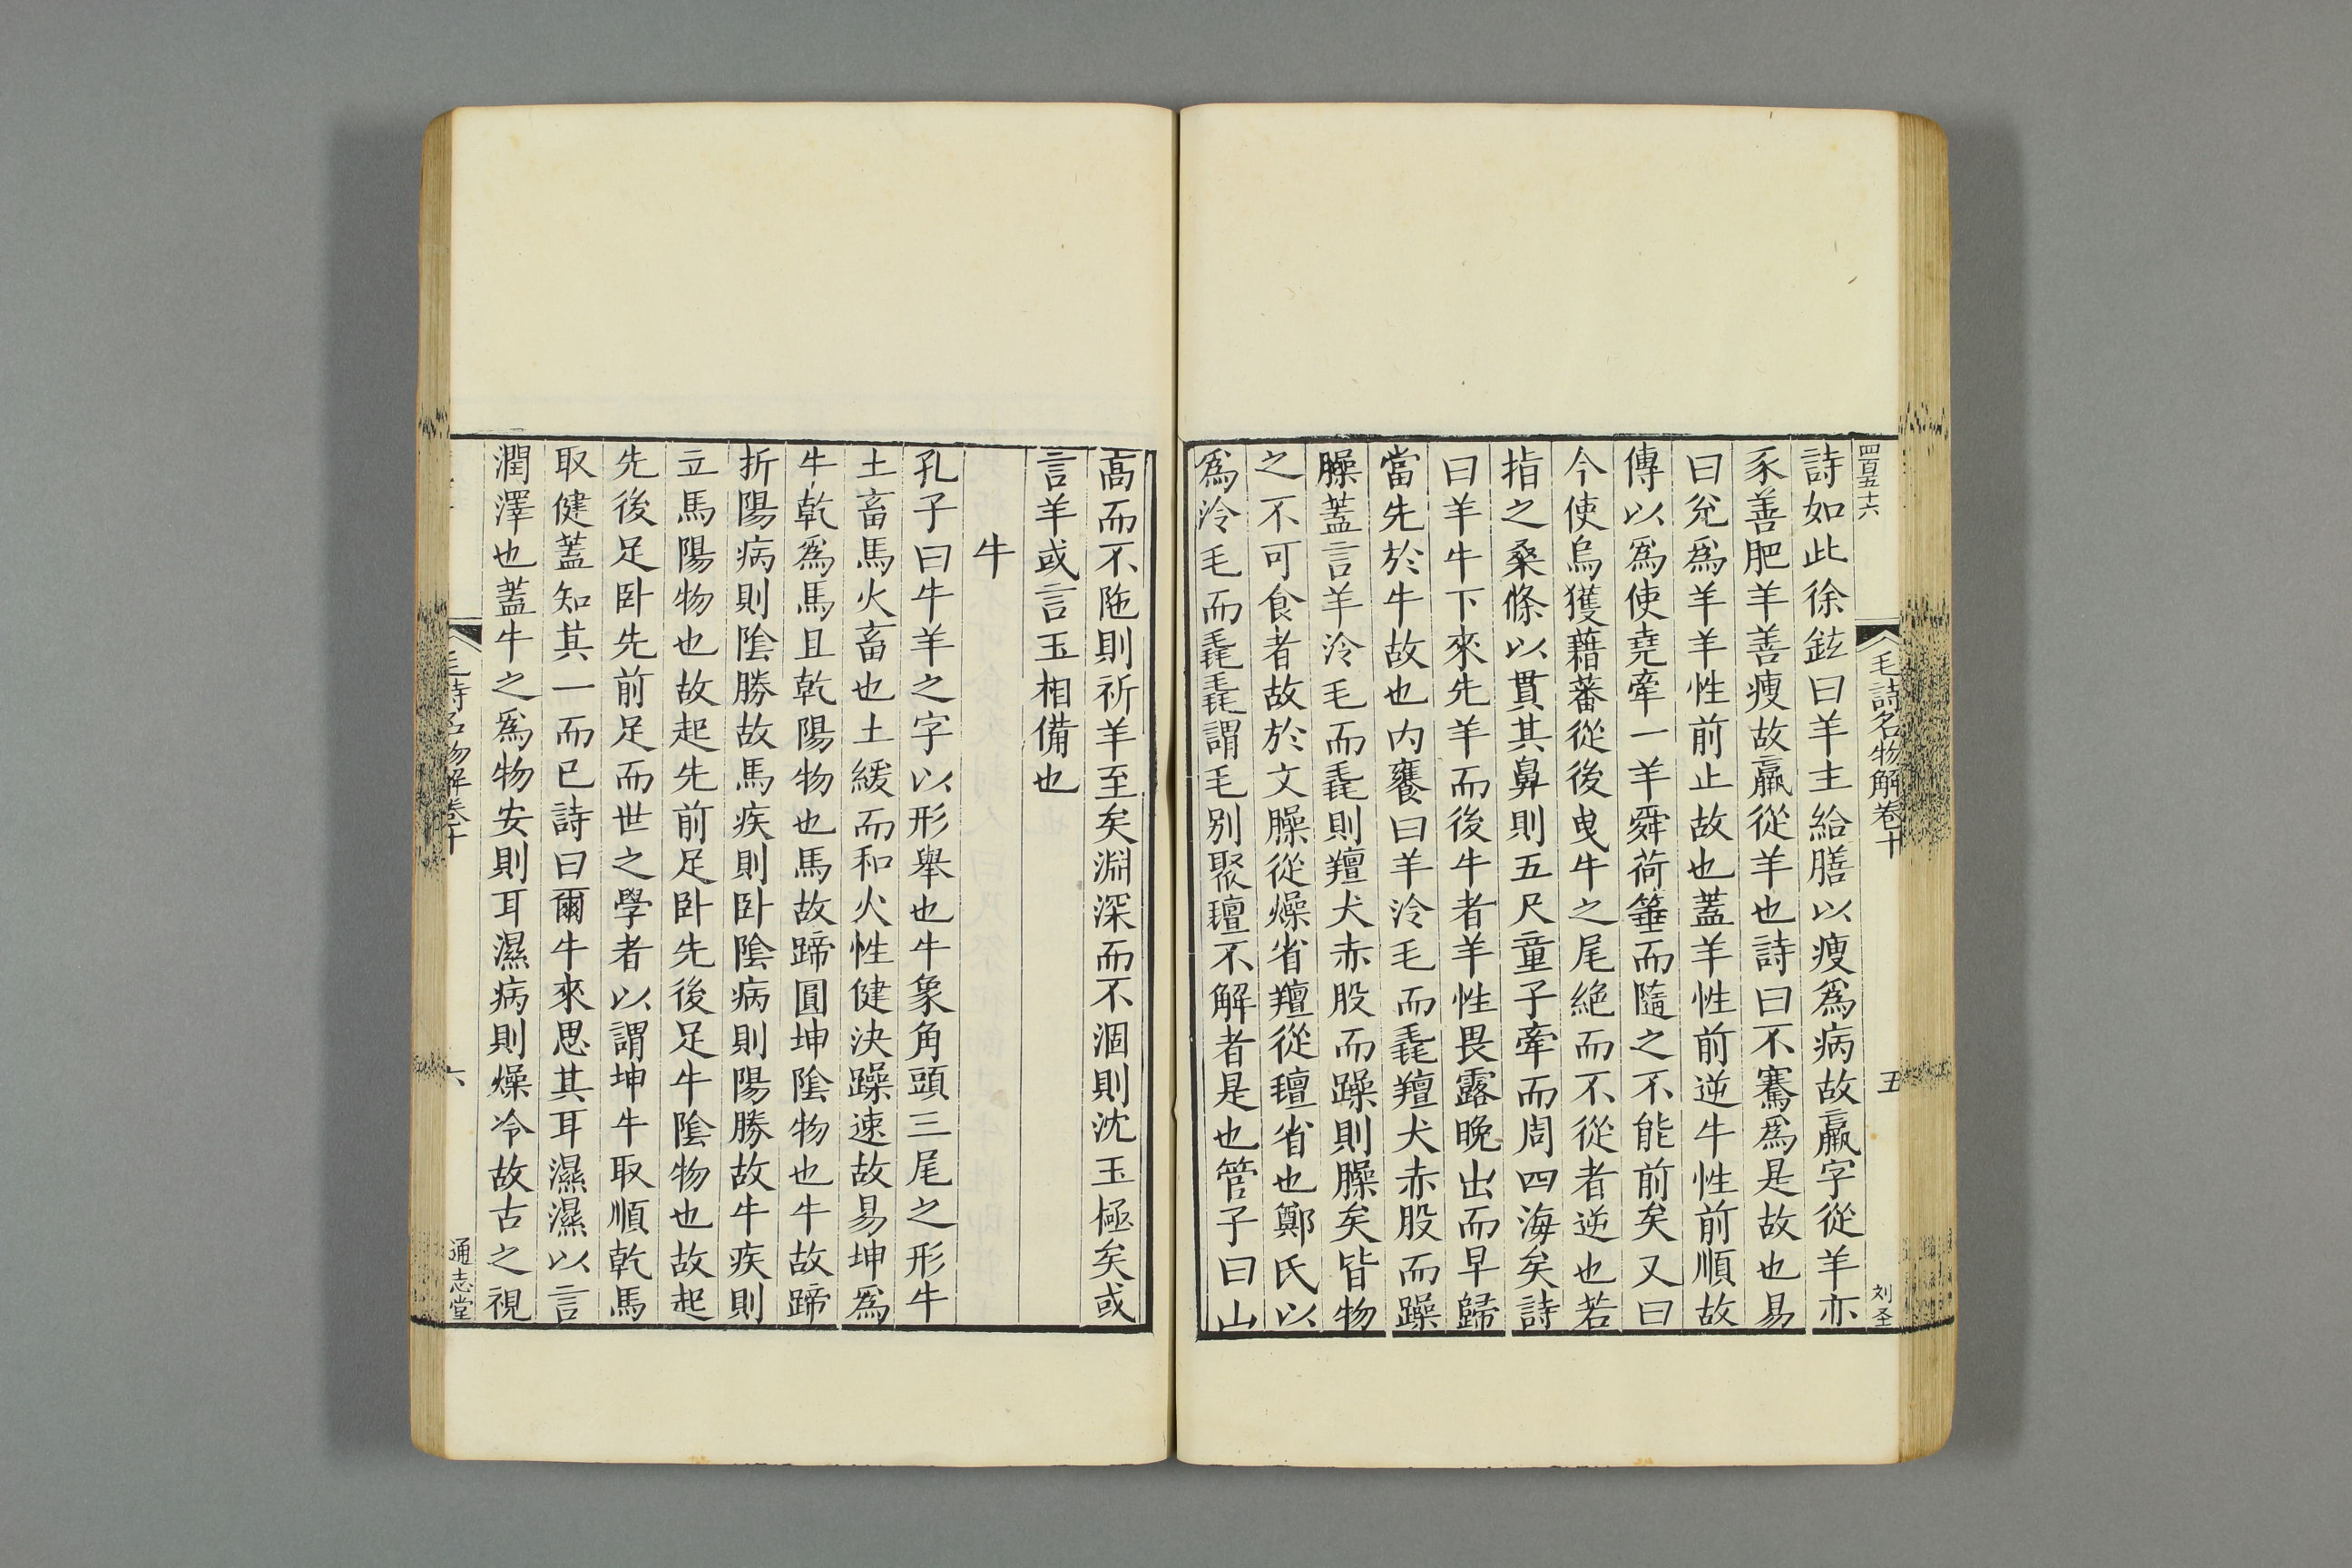 四百五十六
毛詩名物解卷十
五
刘圣
詩如此徐鉉曰羊主給膳以瘦爲病故羸字從羊亦
豕善肥羊善瘦故羸從羊也詩曰不騫爲是故也易
曰兌爲羊羊性前止故也蓋羊性前逆牛性前順故
傳以爲使堯牽一羊舜荷箠而隨之不能前矣又曰
今使烏獲藉蕃從後曳牛之尾絕而不從者逆也若
指之桑條以貫其鼻則五尺童子牽而周四海矣詩
曰羊牛下來先羊而後牛者羊性畏露晚出而早歸
當先於牛故也内饔曰羊泠毛而毳羶犬赤股而躁
臊蓋言羊泠毛而毳則羶犬赤股而躁則臊矣皆物
之不可食者故於文臊從燥省羶從羶省也鄭氏以
爲泠毛而毳毳謂毛別聚䍴不解者是也管子曰山
高而不陁則祈羊至矣淵深而不涸則沈玉極矣或
言羊或言玉相備也
牛
孔子曰牛羊之字以形舉也牛象角頭三尾之形牛
土畜馬火畜也土緩而和火性健決躁速故易坤爲
牛乾爲馬且乾陽物也馬故蹄圓坤陰物也牛故蹄
折陽病則陰勝故馬疾則卧陰病則陽勝故牛疾則
立馬陽物也故起先前足卧先後足牛陰物也故起
先後足卧先前足而世之學者以謂坤牛取順乾馬
取健蓋知其一而已詩曰爾牛來思其耳濕濕以言
潤澤也蓋牛之爲物安則耳濕病則燥冷故古之視
毛詩名物解卷十
六
通志堂